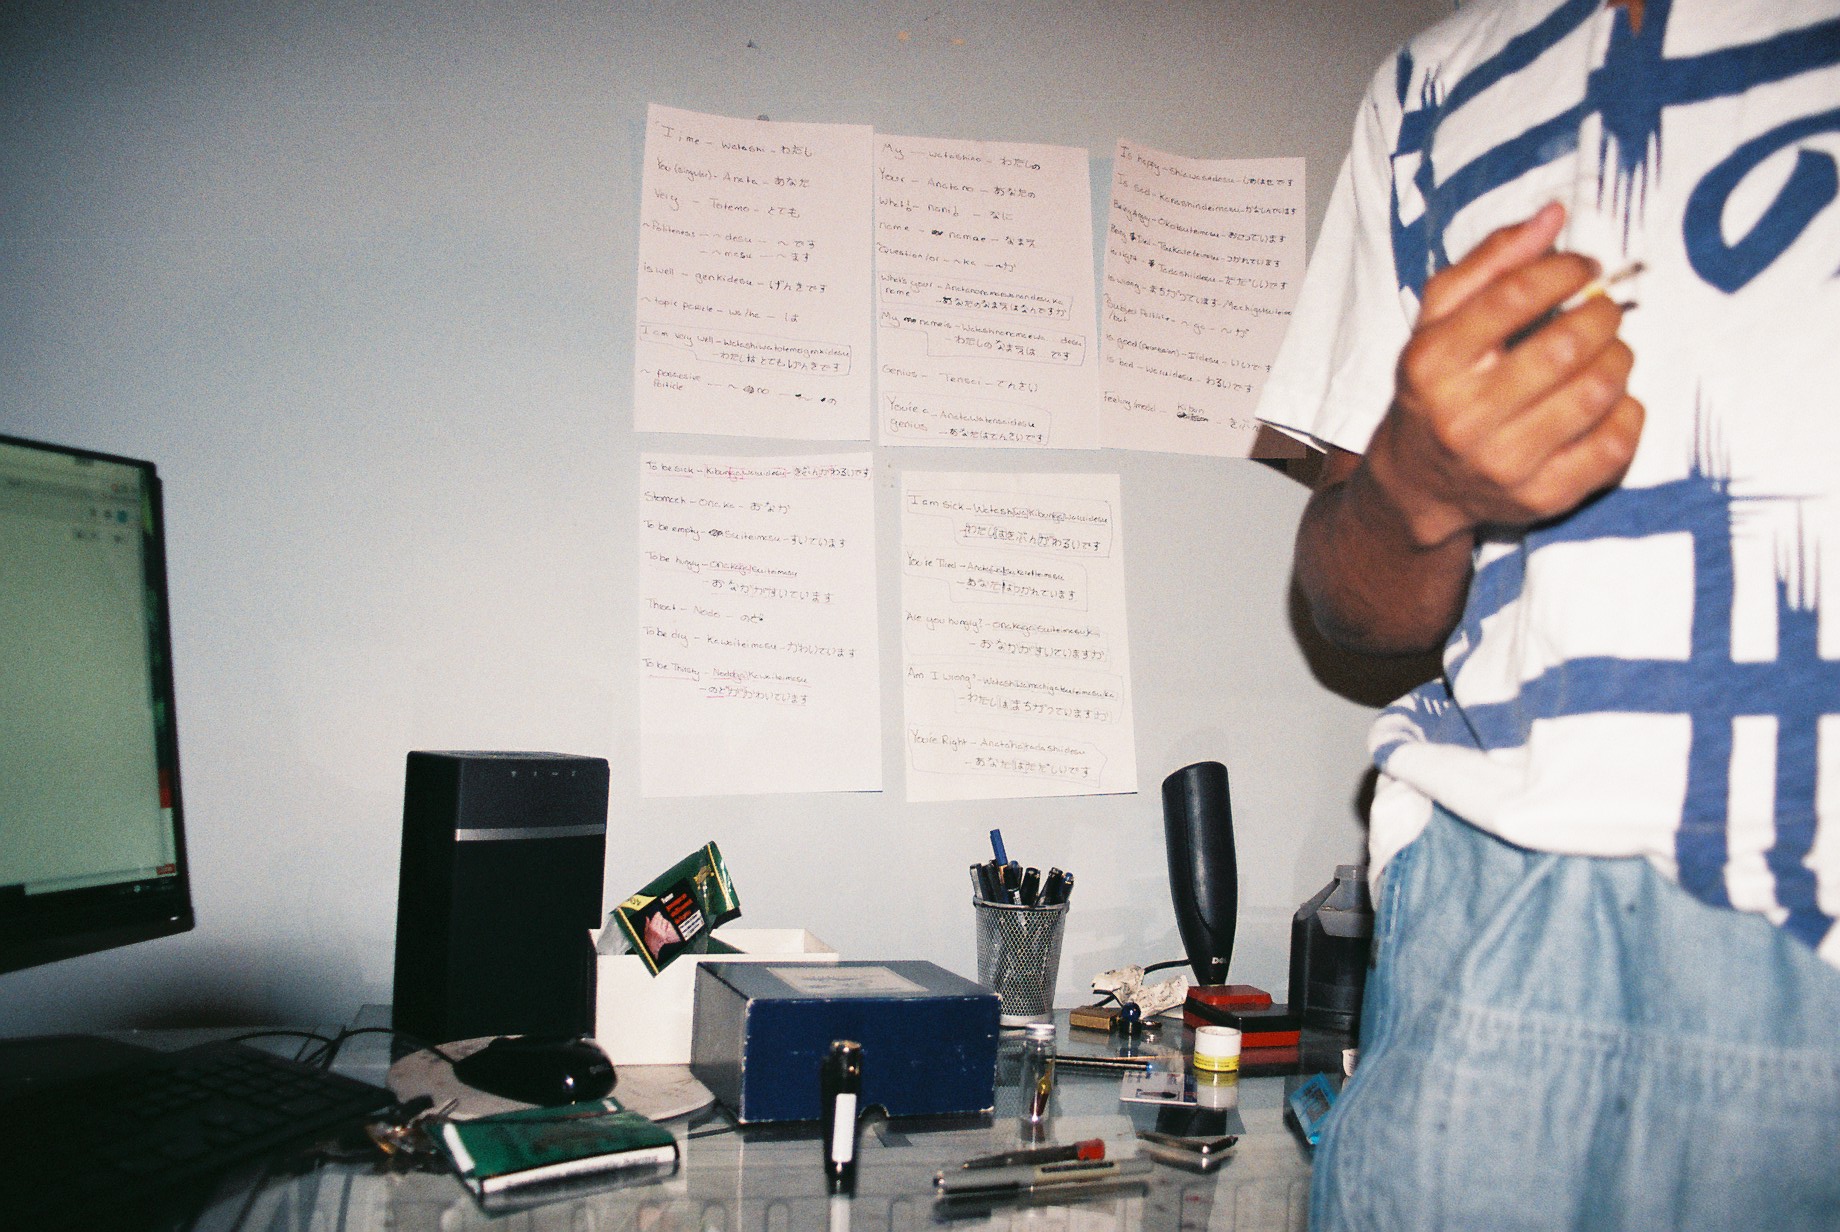 I, me - Watashi - わたし
You (singular) - Anata - あなた
Very - Totemo - とても
~Politeness - ~desu - ~です
- ~masu - ~ます
is well - genkidesu - げんきです
~topic particle - wa/ha - は
I am very well - Watashiwatotemogenkidesu
- わたしは とても げんきです
~ possesive - ~ no - ~ の
Particle
My - watashino - わたしの
Your - Anatano - あなたの
What - nani - なに
name - namae - なまえ
Question/or - ~ka - ~か
What's your - Anatanonamaewanandesuka
name - あなたのなまえはなんですか
My name is - Watashinonamaewa desu
- わたしの なまえは です
Genius - Tensai - てんさい
You're a - Anatawatensaidesu
genius - あなたはてんさいです
Is happy - Shiawasedesu - しあわせです
Is Sad - Kanashindeimasu - かなしんでいます
Being Angry - Okotteimasu - おこっています
Being Tired - Tsukareteimasu - つかれています
is right - Tadashiidesu - ただしいです
is wrong - まちがっています / Machigatteimasu
Subject Particle - ~ga - ~が
/but
is good (permission) - Iidesu - いいです
is bad - Waruidesu - わるいです
Feeling/mood - Kibun - きぶん
To be sick - Kibungawaruidesu - きぶんがわるいです
Stomach - Onaka - おなか
To be empty - Suiteimasu - すいています
To be hungry - Onakagasuiteimasu
- おなかがすいています
Throat - Nodo - のど
To be dry - Kawaiteimasu - かわいています
To be Thirsty - NodogaKawaiteimasu
- のどがかわいています
I am sick - WatashiwaKibungawaruidesu
- わたしはきぶんがわるいです
You're Tired - Anatawatsukareteimasu
- あなたはつかれています
Are you hungry? - Onakagasuiteimasuka
- おなかがすいていますか
Am I wrong? - Watashiwamachigatteimasuka
- わたしはまちがっていますか
You're Right - Anatawatadashiidesu
- あなたはただしいです
DELL